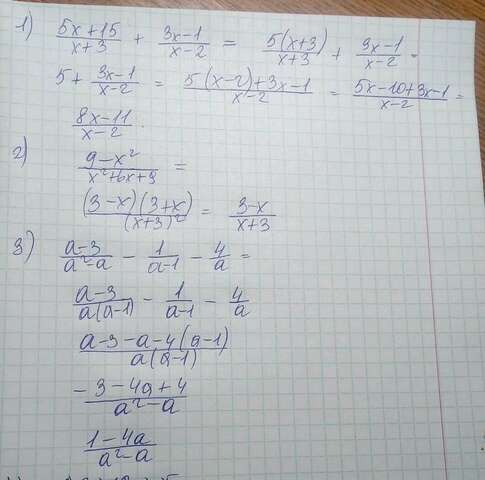 1) (5x+15)/(x+3) + (3x-1)/(x-2) = 5(x+3)/(x+3) + (3x-1)/(x-2) =
5 + (3x-1)/(x-2) = (5(x-2)+3x-1)/(x-2) = (5x-10+3x-1)/(x-2) =
(8x-11)/(x-2).
2) (9-x²)/(x²+6x+9) =
(3-x)(3+x)/(x+3)² = (3-x)/(x+3)
3) (a-3)/(a²-a) - 1/(a-1) - 4/a =
(a-3)/(a(a-1)) - 1/(a-1) - 4/a
(a-3-a-4(a-1))/(a(a-1))
(-3-4a+4)/(a²-a)
(1-4a)/(a²-a)